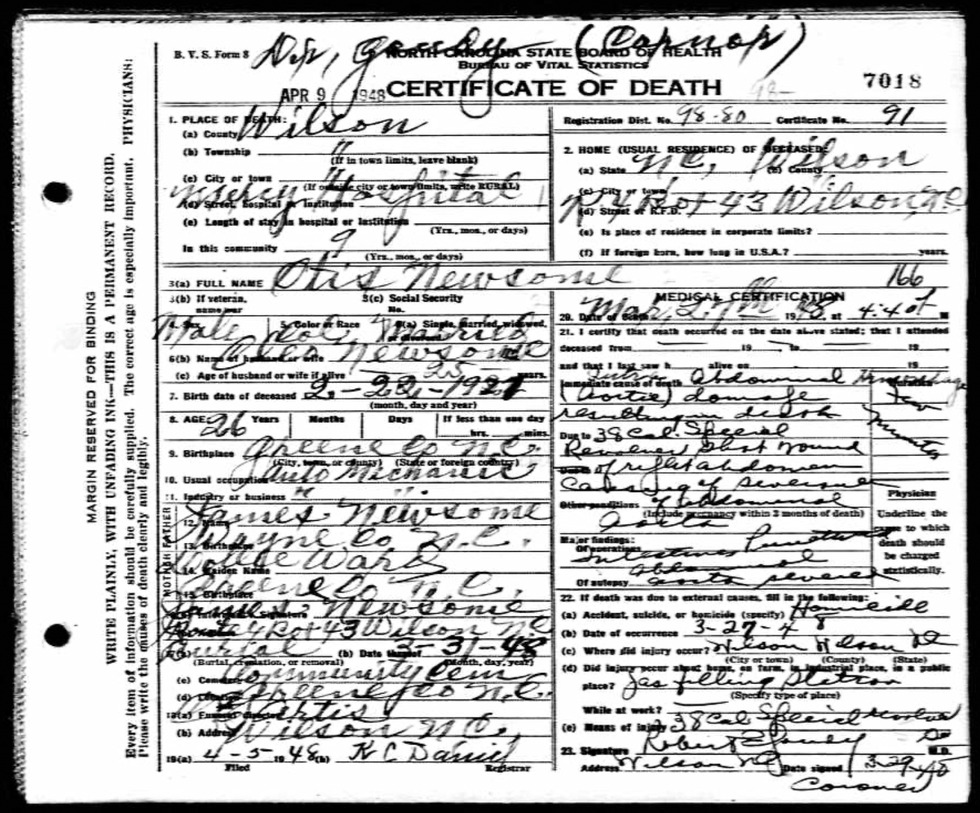 B. V. S. Form 8
(Coroner)
NORTH CAROLINA STATE BOARD OF HEALTH
BUREAU OF VITAL STATISTICS
APR 9 1948 CERTIFICATE OF DEATH 7018
98-
MARGIN RESERVED FOR BINDING
WRITE PLAINLY, WITH UNFADING INK—THIS IS A PERMANENT RECORD.
Every item of information should be carefully supplied. The correct age is especially important. PHYSICIANS:
Please write the causes of death clearly and legibly.
1. PLACE OF DEATH:
(a) County Wilson
(b) Township "
(If in town limits, leave blank)
(c) City or town "
(If outside city or town limits, write RURAL)
(d) Street, hospital or institution Mercy Hospital
(e) Length of stay in hospital or institution
(Yrs., mos., or days)
In this community 9
(Yrs., mos., or days)
Registration Dist. No. 98-80 Certificate No. 91
2. HOME (USUAL RESIDENCE) OF DECEASED:
(a) State N.C. (b) County Wilson
(c) City or town
(d) Street or R.F.D. R 4 Box 43 Wilson, N.C.
(e) Is place of residence in corporate limits?
(f) If foreign born, how long in U.S.A.? years.
3(a) FULL NAME Otis Newsome 166
3(b) If veteran, name war
3(c) Social Security No.
4. Sex Male 5. Color or Race Col 6(a) Single, married, widowed, or divorced Married
6(b) Name of husband or wife Newsome
(c) Age of husband or wife if alive 25 years.
7. Birth date of deceased 2-22-1921
(month, day and year)
8. AGE: 26 Years Months Days If less than one day
hrs. mins.
9. Birthplace Greene Co N.C.
(City, town, or county) (State or foreign country)
10. Usual occupation Auto Mechanic
11. Industry or business " "
FATHER
12. Name James Newsome
13. Birthplace Wayne Co N.C.
MOTHER
14. Maiden Name
15. Birthplace Greene Co N.C.
Newsome
4 Box 43 Wilson N.C.
Burial (b) Date 3-31-48
(Burial, cremation, or removal) (Month, day, year)
(c) Cemetery Community Cem
(d) Location Greene Co N.C.
18(a) Funeral director Artis
(b) Address Wilson N.C.
19(a) 4-5 1948 (b) K C Daniel
Filed Registrar
MEDICAL CERTIFICATION
20. Date of Death Mar 27th 1948 at 4:40
21. I certify that death occurred on the date above stated; that I attended
deceased from 19 to 19
and that I last saw h alive on 19
Immediate cause of death Abdominal Hemorrhage Duration
(Aortic) damage few
resulting in death minutes
Due to 38 Cal. Special
Revolver shot wound
of right abdomen
Causing of severance
Other conditions of abdominal
(Include pregnancy within 3 months of death)
aorta
Major findings:
Of operations Intestines Punctured
abdominal
Of autopsy aorta severed
Physician
Underline the cause to which death should be charged statistically.
22. If death was due to external causes, fill in the following:
(a) Accident, suicide, or homicide (specify) Homicide
(b) Date of occurrence 3-27-48
(c) Where did injury occur? Wilson Wilson NC
(City or town) (County) (State)
(d) Did injury occur about home, on farm, in industrial place, in a public
place? Gas filling Station
(Specify type of place)
While at work?
(e) Means of injury 38 Cal Special revolver
23. Signature Robert M.D.
Address Wilson NC Date signed 3-29-48
Coroner